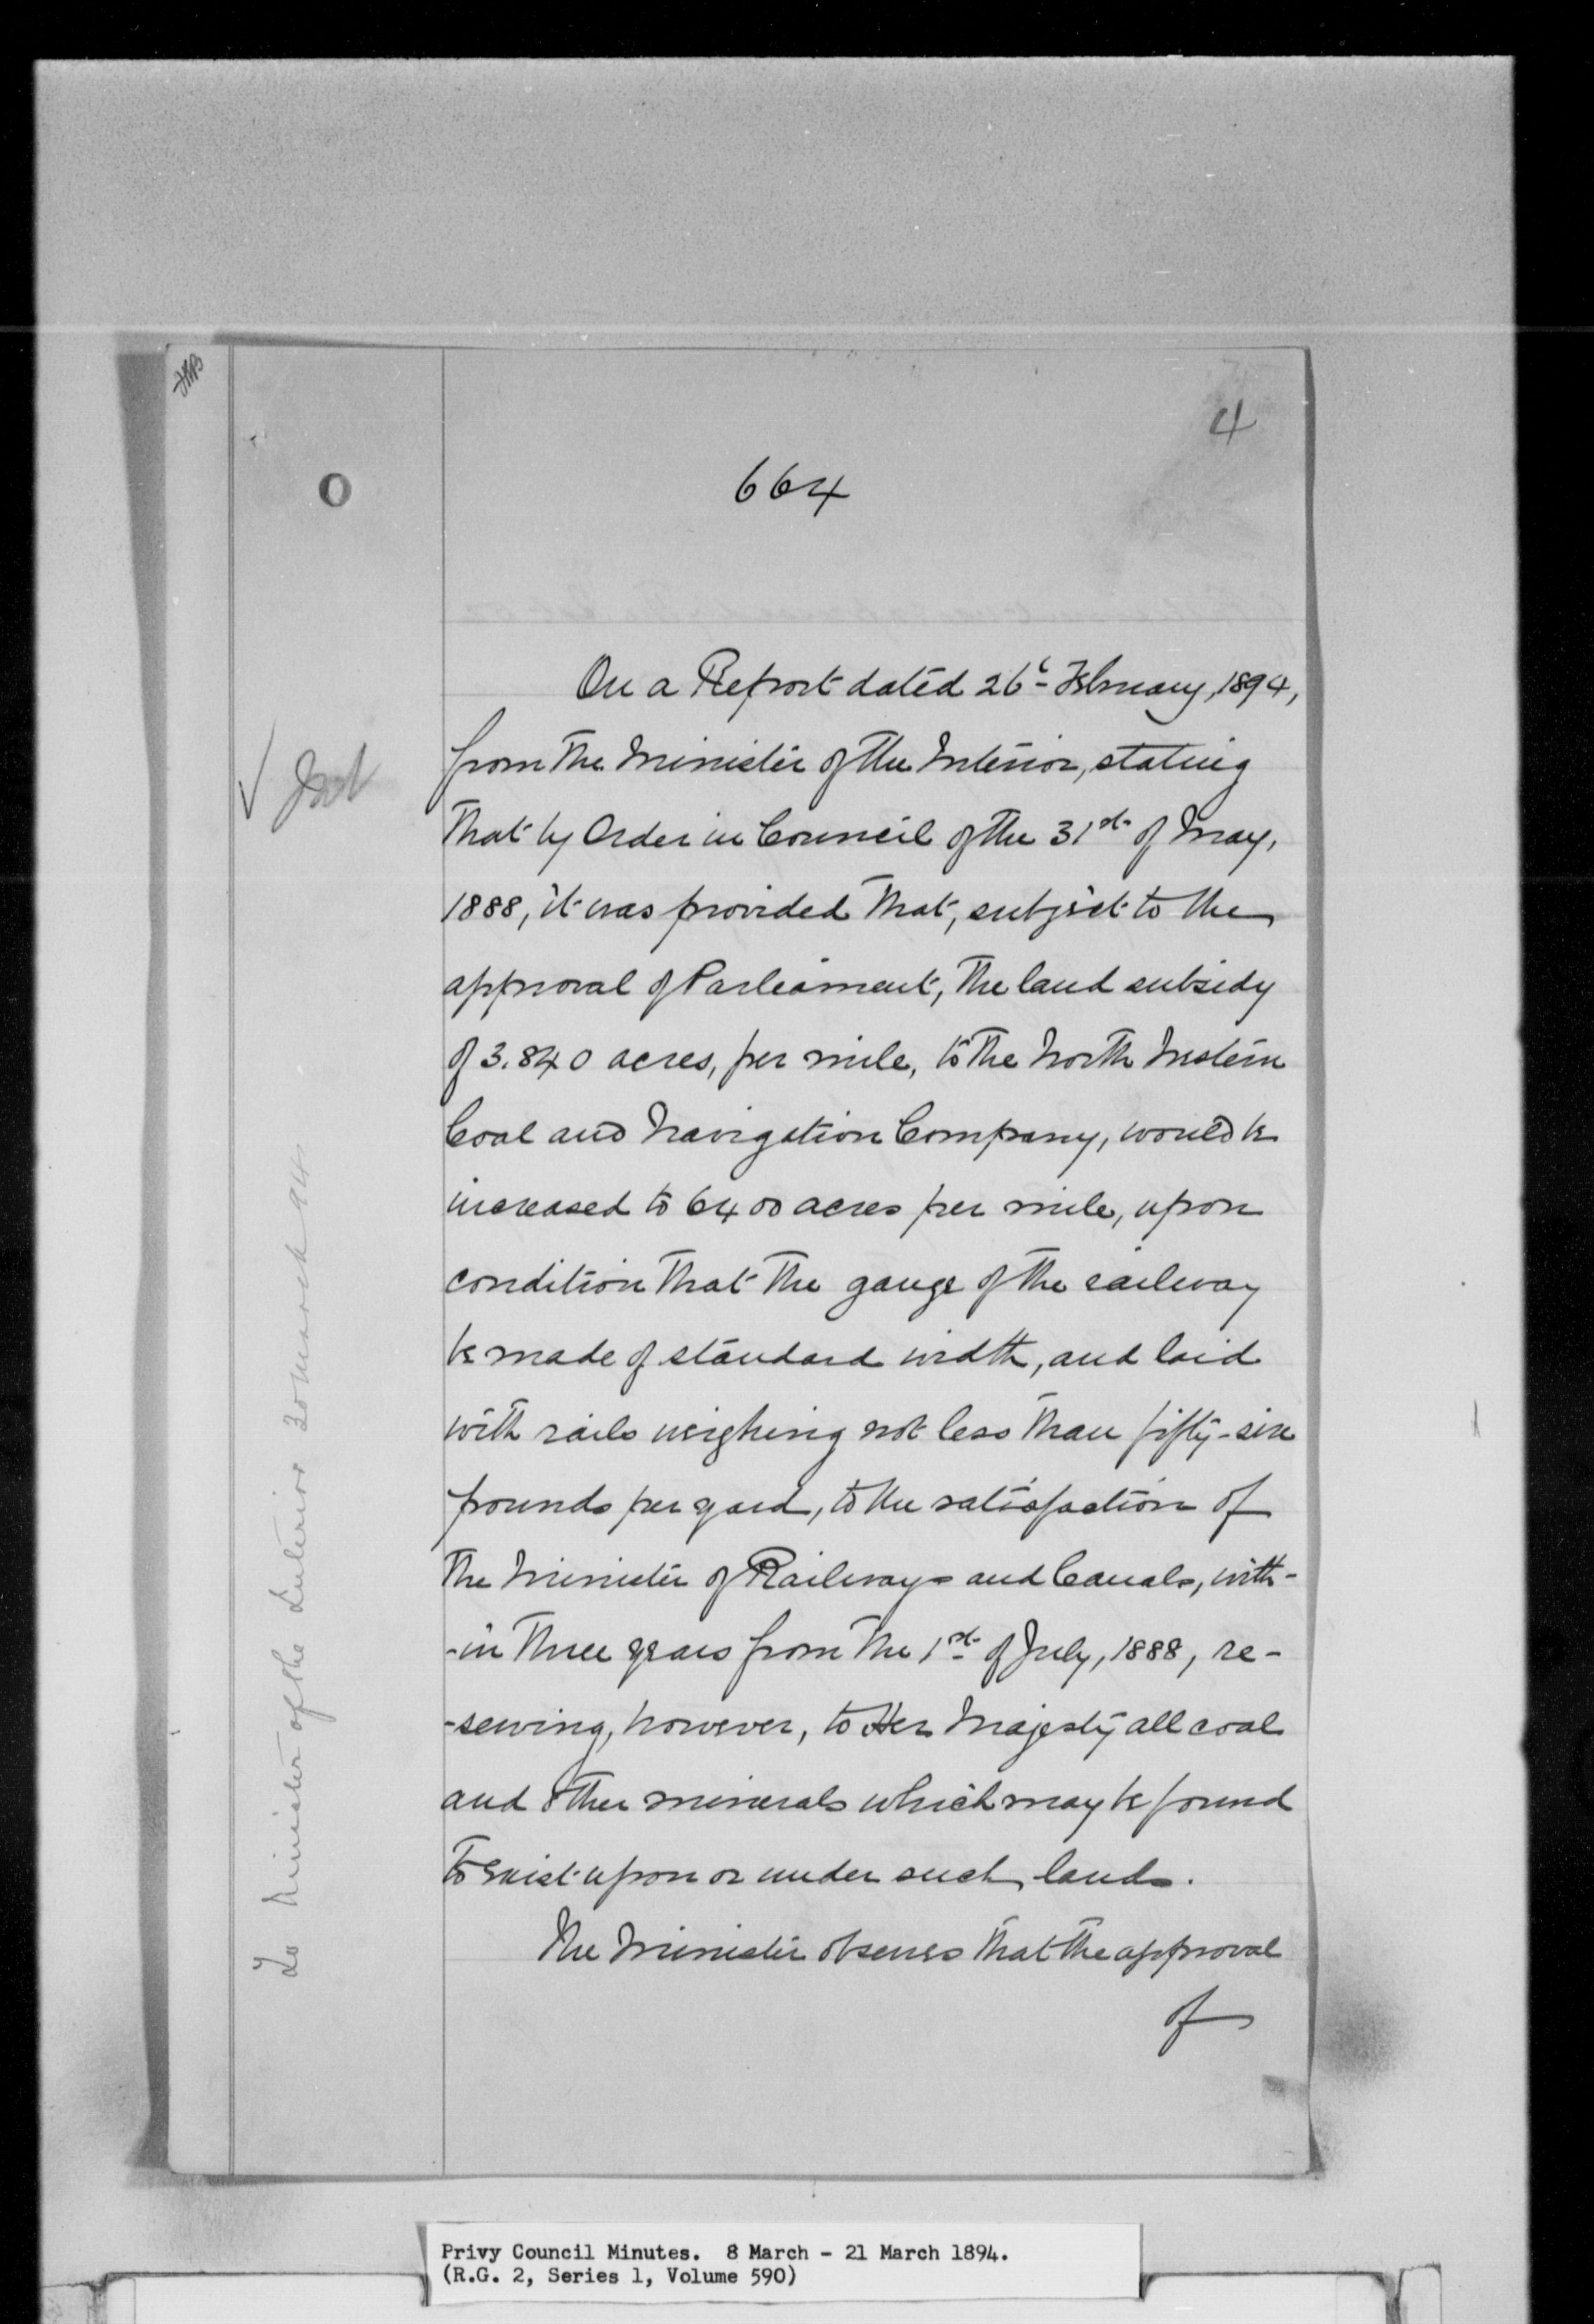 4
664
On a Report dated 26th February, 1894,
from the Minister of the Interior, stating
that by Order in Council of the 31st of May,
1888, it was provided that, subject to the
approval of Parliament, the land subsidy
of 3.840 acres, per mile, to the North Western
Coal and Navigation Company, would be
increased to 6400 acres per mile, upon
condition that the gauge of the railway
be made of standard width, and laid
with rails weighing not less than fifty-six
pounds per yard, to the satisfaction of
the Minister of Railways and Canals, with-
-in three years from the 1st of July, 1888, re-
-serving, however, to Her Majesty all coal
and other minerals which may be found
to exist upon or under such lands.
The Minister observes that the approval
of
√ Int
To Minister of the Interior 20 March 94
Privy Council Minutes. 8 March - 21 March 1894.
(R.G. 2, Series 1, Volume 590)